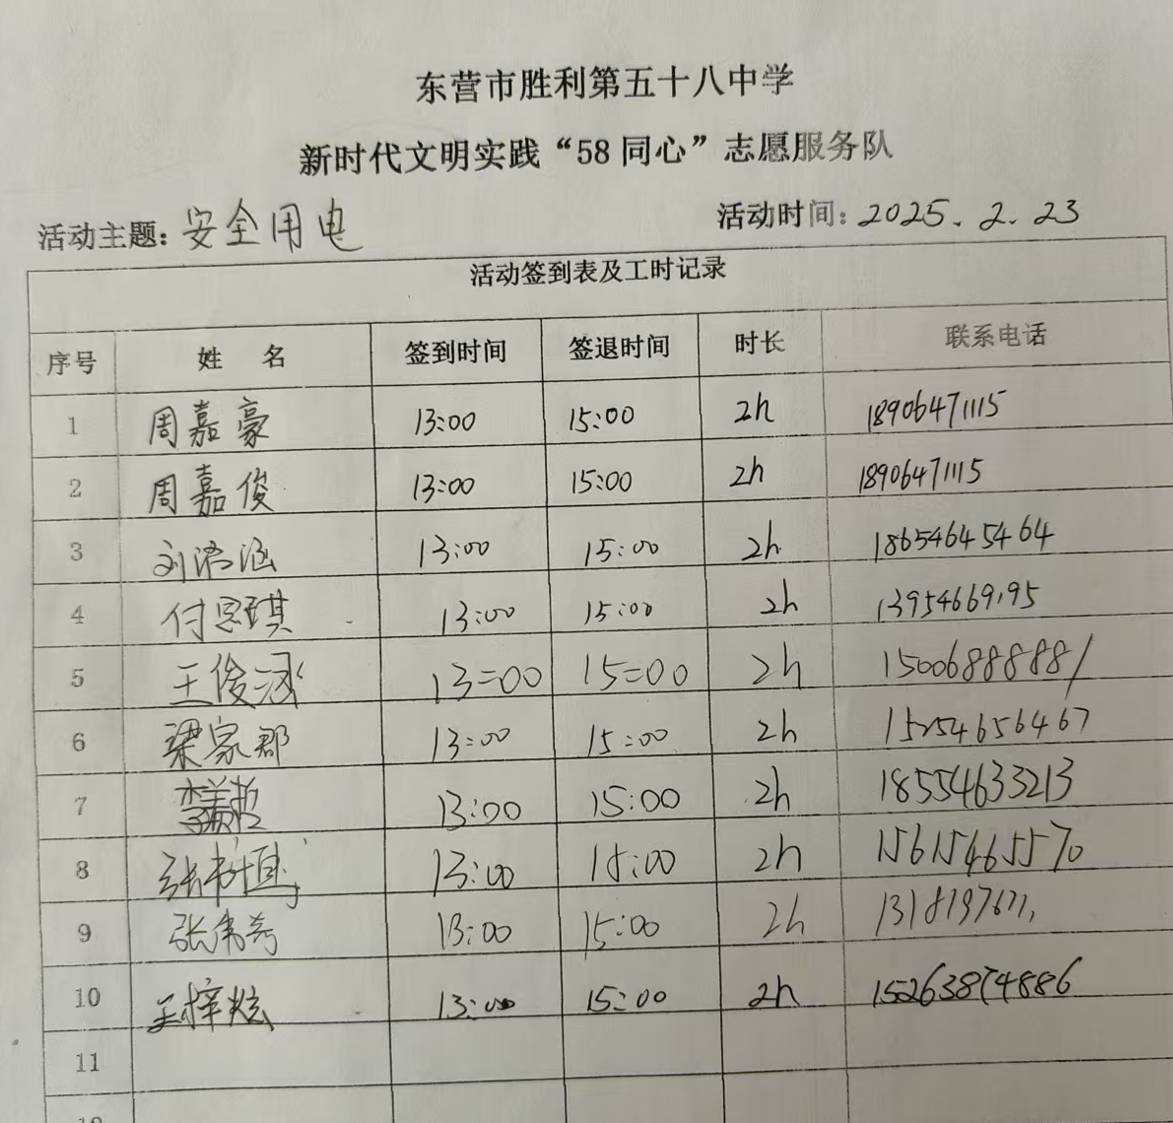 东营市胜利第五十八中学
新时代文明实践“58同心”志愿服务队
活动主题：安全用电 活动时间：2025.2.23
活动签到表及工时记录
序号 姓 名 签到时间 签退时间 时长 联系电话
1 周嘉豪 13:00 15:00 2h 18906471115
2 周嘉俊 13:00 15:00 2h 18906471115
3 刘语涵 13:00 15:00 2h 18654645464
4 付思琪 13:00 15:00 2h 13954669195
5 王俊涵 13:00 15:00 2h 15006888881
6 梁家郡 13:00 15:00 2h 15254656467
7 13:00 15:00 2h 18554633213
8 13:00 15:00 2h 15615465570
9 13:00 15:00 2h
10 王梓炫 13:00 15:00 2h 15263874886
11